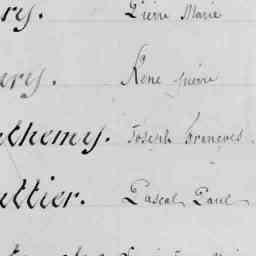 ry. Pierre Marie
ery. Rene pierre
themy. Joseph francois.
uttier. Pascal Paul